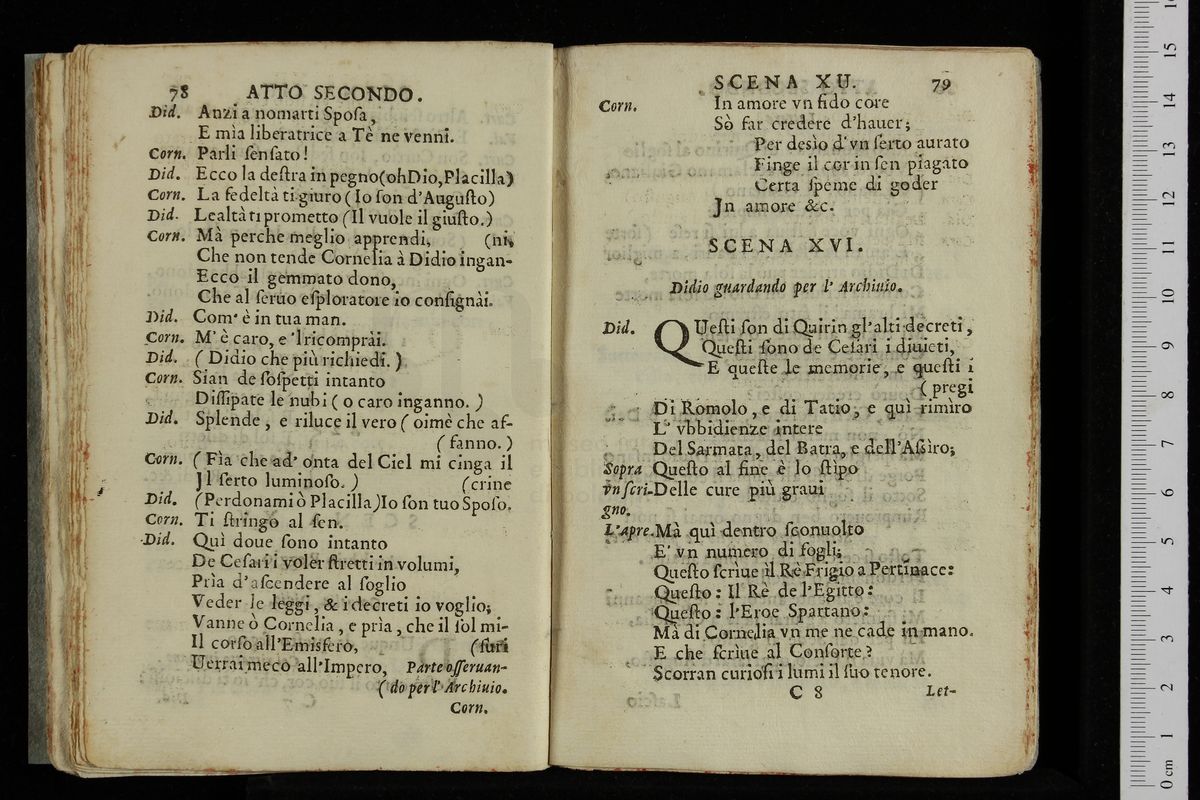 78 ATTO SECONDO.
Did. Anzi a nomarti Spoſa,
E mìa liberatrice a Tè ne venni.
Corn. Parli ſenſato!
Did. Ecco la deſtra in pegno(oh Dio,Placilla)
Corn. La fedeltà ti giuro (Io ſon d'Auguſto)
Did. Lealtà ti prometto (Il vuole il giuſto.)
Corn. Mà perche meglio apprendi, (ni,
Che non tende Cornelia à Didio ingan-
Ecco il gemmato dono,
Che al ſeruo eſploratore io conſignài.
Did. Com' è in tua man.
Corn. M' è caro, e 'l ricomprài.
Did. ( Didio che più richiedi. )
Corn. Sian de ſoſpetti intanto
Diſſipate le nubi ( o caro inganno. )
Did. Splende , e riluce il vero ( oimè che af-
( fanno. )
Corn. ( Fìa che ad' onta del Ciel mi cinga il
Jl ſerto luminoſo. ) (crine
Did. (Perdonami ò Placilla)Io ſon tuo Spoſo.
Corn. Ti ſtringo al ſen.
Did. Quì doue ſono intanto
De Ceſari i voler ſtretti in volumi,
Prìa d'aſcendere al ſoglio
Veder le leggi, & i decreti io voglio;
Vanne ò Cornelia, e prìa, che il ſol mi-
Il corſo all'Emisfero, (ſuri
Uerrai meco all'Impero, Parte oſſeruan-
( do per l' Archiuio.
Corn.
SCENA XU. 79
Corn. In amore vn fido core
Sò far credere d'hauer;
Per desìo d'vn ſerto aurato
Finge il cor in ſen piagato
Certa ſpeme di goder
Jn amore &c.
SCENA XVI.
Didio guardando per l' Archiuio.
Did. QUeſti ſon di Quirin gl'alti decreti,
Queſti ſono de Ceſari i diuieti,
E queſte le memorie, e queſti i
( pregi
Di Romolo, e di Tatio, e quì rimìro
L' vbbidienze intere
Del Sarmata, del Batra, e dell'Aſsìro;
Sopra Queſto al fine è lo ſtìpo
vn ſcri- Delle cure più graui
gno.
L'apre. Mà quì dentro ſconuolto
E' vn numero di fogli;
Queſto ſcrìue il Rè Frigio a Pertinace:
Queſto : Il Rè de l'Egitto:
Queſto : l'Eroe Spartano:
Mà di Cornelia vn me ne cade in mano.
E che ſcrìue al Conſorte?
Scorran curioſi i lumi il ſuo tenore.
C 8 Let-
0 cm 1 2 3 4 5 6 7 8 9 10 11 12 13 14 15